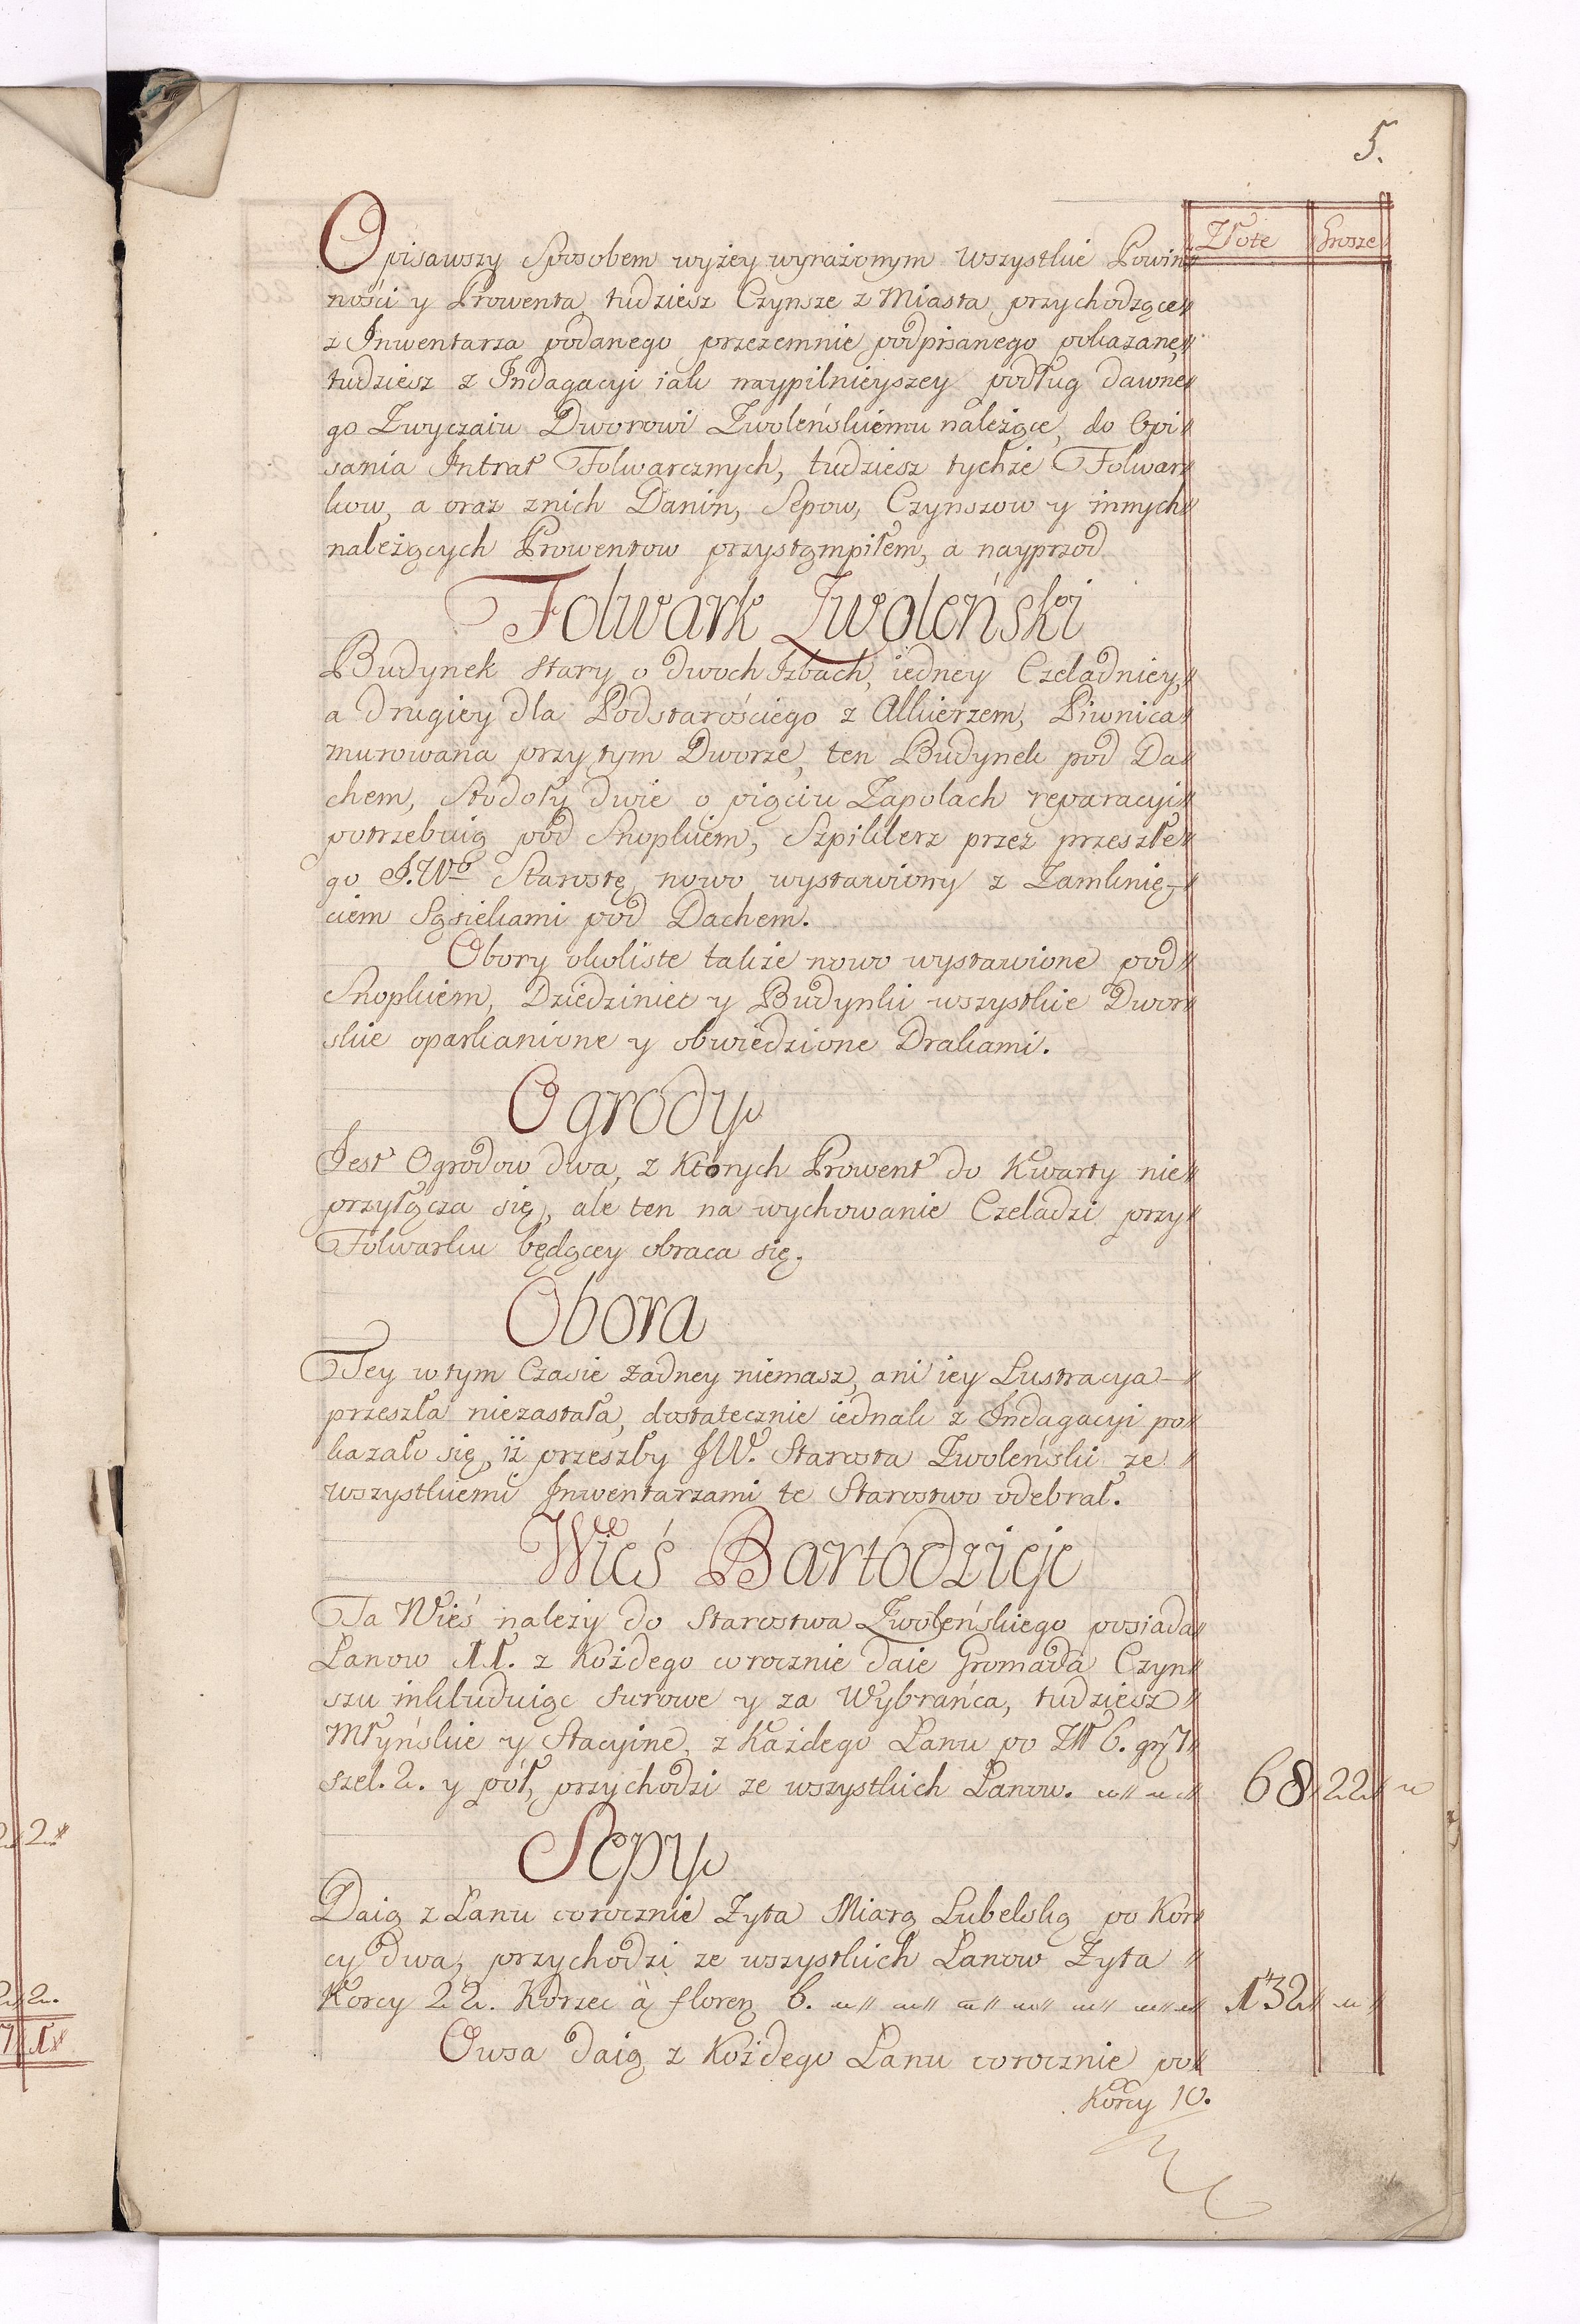 5.
Złote Grosze
Opisawszy Sposobem wyżey wyrażonym wszystkie Powin//
ności y Prowenta, tudziesz Czynsze z Miasta przychodzące//
z Inwentarza podanego przezemnie podpisanego pokazane,//
tudziesz z Indagacyi iak naypilnieyszey podług dawne//
go Zwyczaiu Dworowi Zwoleńskiemu należące, do Opi//
sania Intrat Folwarcznych, tudziesz tychże Folwar//
kow, a oraz znich Danin, Sepow, Czynszow y innych//
należących Prowentow przystąmpiłem, a nayprzod
Folwark Zwoleński
Budynek stary o dwoch Izbach, iedney Czeladniey,//
a drugiey dla Podstarościego z Alkierzem, Piwnica//
murowana przy tym Dworze, ten Budynek pod Da//
chem, Stodoły dwie o pięciu Zapolach reparacyi//
potrzebuią pod Snopkiem, Szpiklerz przez przeszłe//
go J.Wo Starostę nowo wystawiony z Zamknię//
ciem Sąsiekami pod Dachem.
Obory okoliste także nowo wystawione pod//
Snopkiem, Dziedziniec y Budynki wszystkie Dwor//
skie oparkanione y obwiedzione Drakami.
Ogrody
Jest Ogrodow dwa, z Których Prowent do Kwarty nie//
przyłącza się, ale ten na wychowanie Czeladzi przy//
Folwarku będącey obraca się.
Obora
Tey w tym Czasie żadney niemasz, ani iey Lustracya—//
przeszła niezastała, dostatecznie iednak z Indagacyi po//
kazało się, iż przeszły JW. Starosta Zwoleński ze //
wszystkiemi Inwentarzami te Starostwo odebrał.
Wieś Bartodzieje
Ta Wieś należy do Starostwa Zwoleńskiego posiada//
Łanow 11. z Kożdego corocznie daie Gromada Czyn//
szu inkluduiąc surowe y za Wybrańca, tudziesz//
Młyńskie y Stacyine, z Każdego Łanu po Zł 6. gr 7//
szel. 2. y pół, przychodzi ze wszystkich Łanow. 68 // 22 //
Sepy
Daią z Łanu corocznie Żyta Miarą Lubelską po Kor//
cy dwa, przychodzi ze wszystkich Łanow Żyta //
Korcy 22. Korzec à floren 6. 132 //
Owsa daią z Kożdego Łanu corocznie po//
Korcy 10.